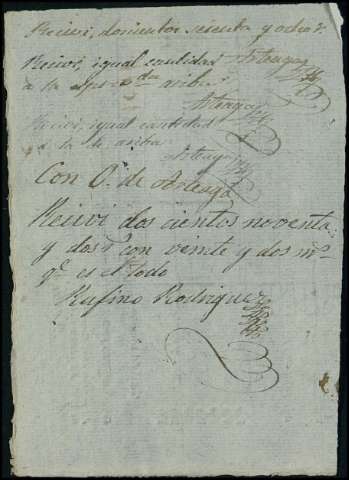 Recivi, doscientos sesenta y ocho r.^s
Arteaga
Recivi, igual cantidad
a la de arriba
Arteaga
Recivi, igual cantidad
a la de arriba
Arteaga
Con O. de Arteaga
Recivi dos cientos noventa
y dos r.^s con veinte y dos m.^s
q.^e es el todo
Rufino Rodriguez